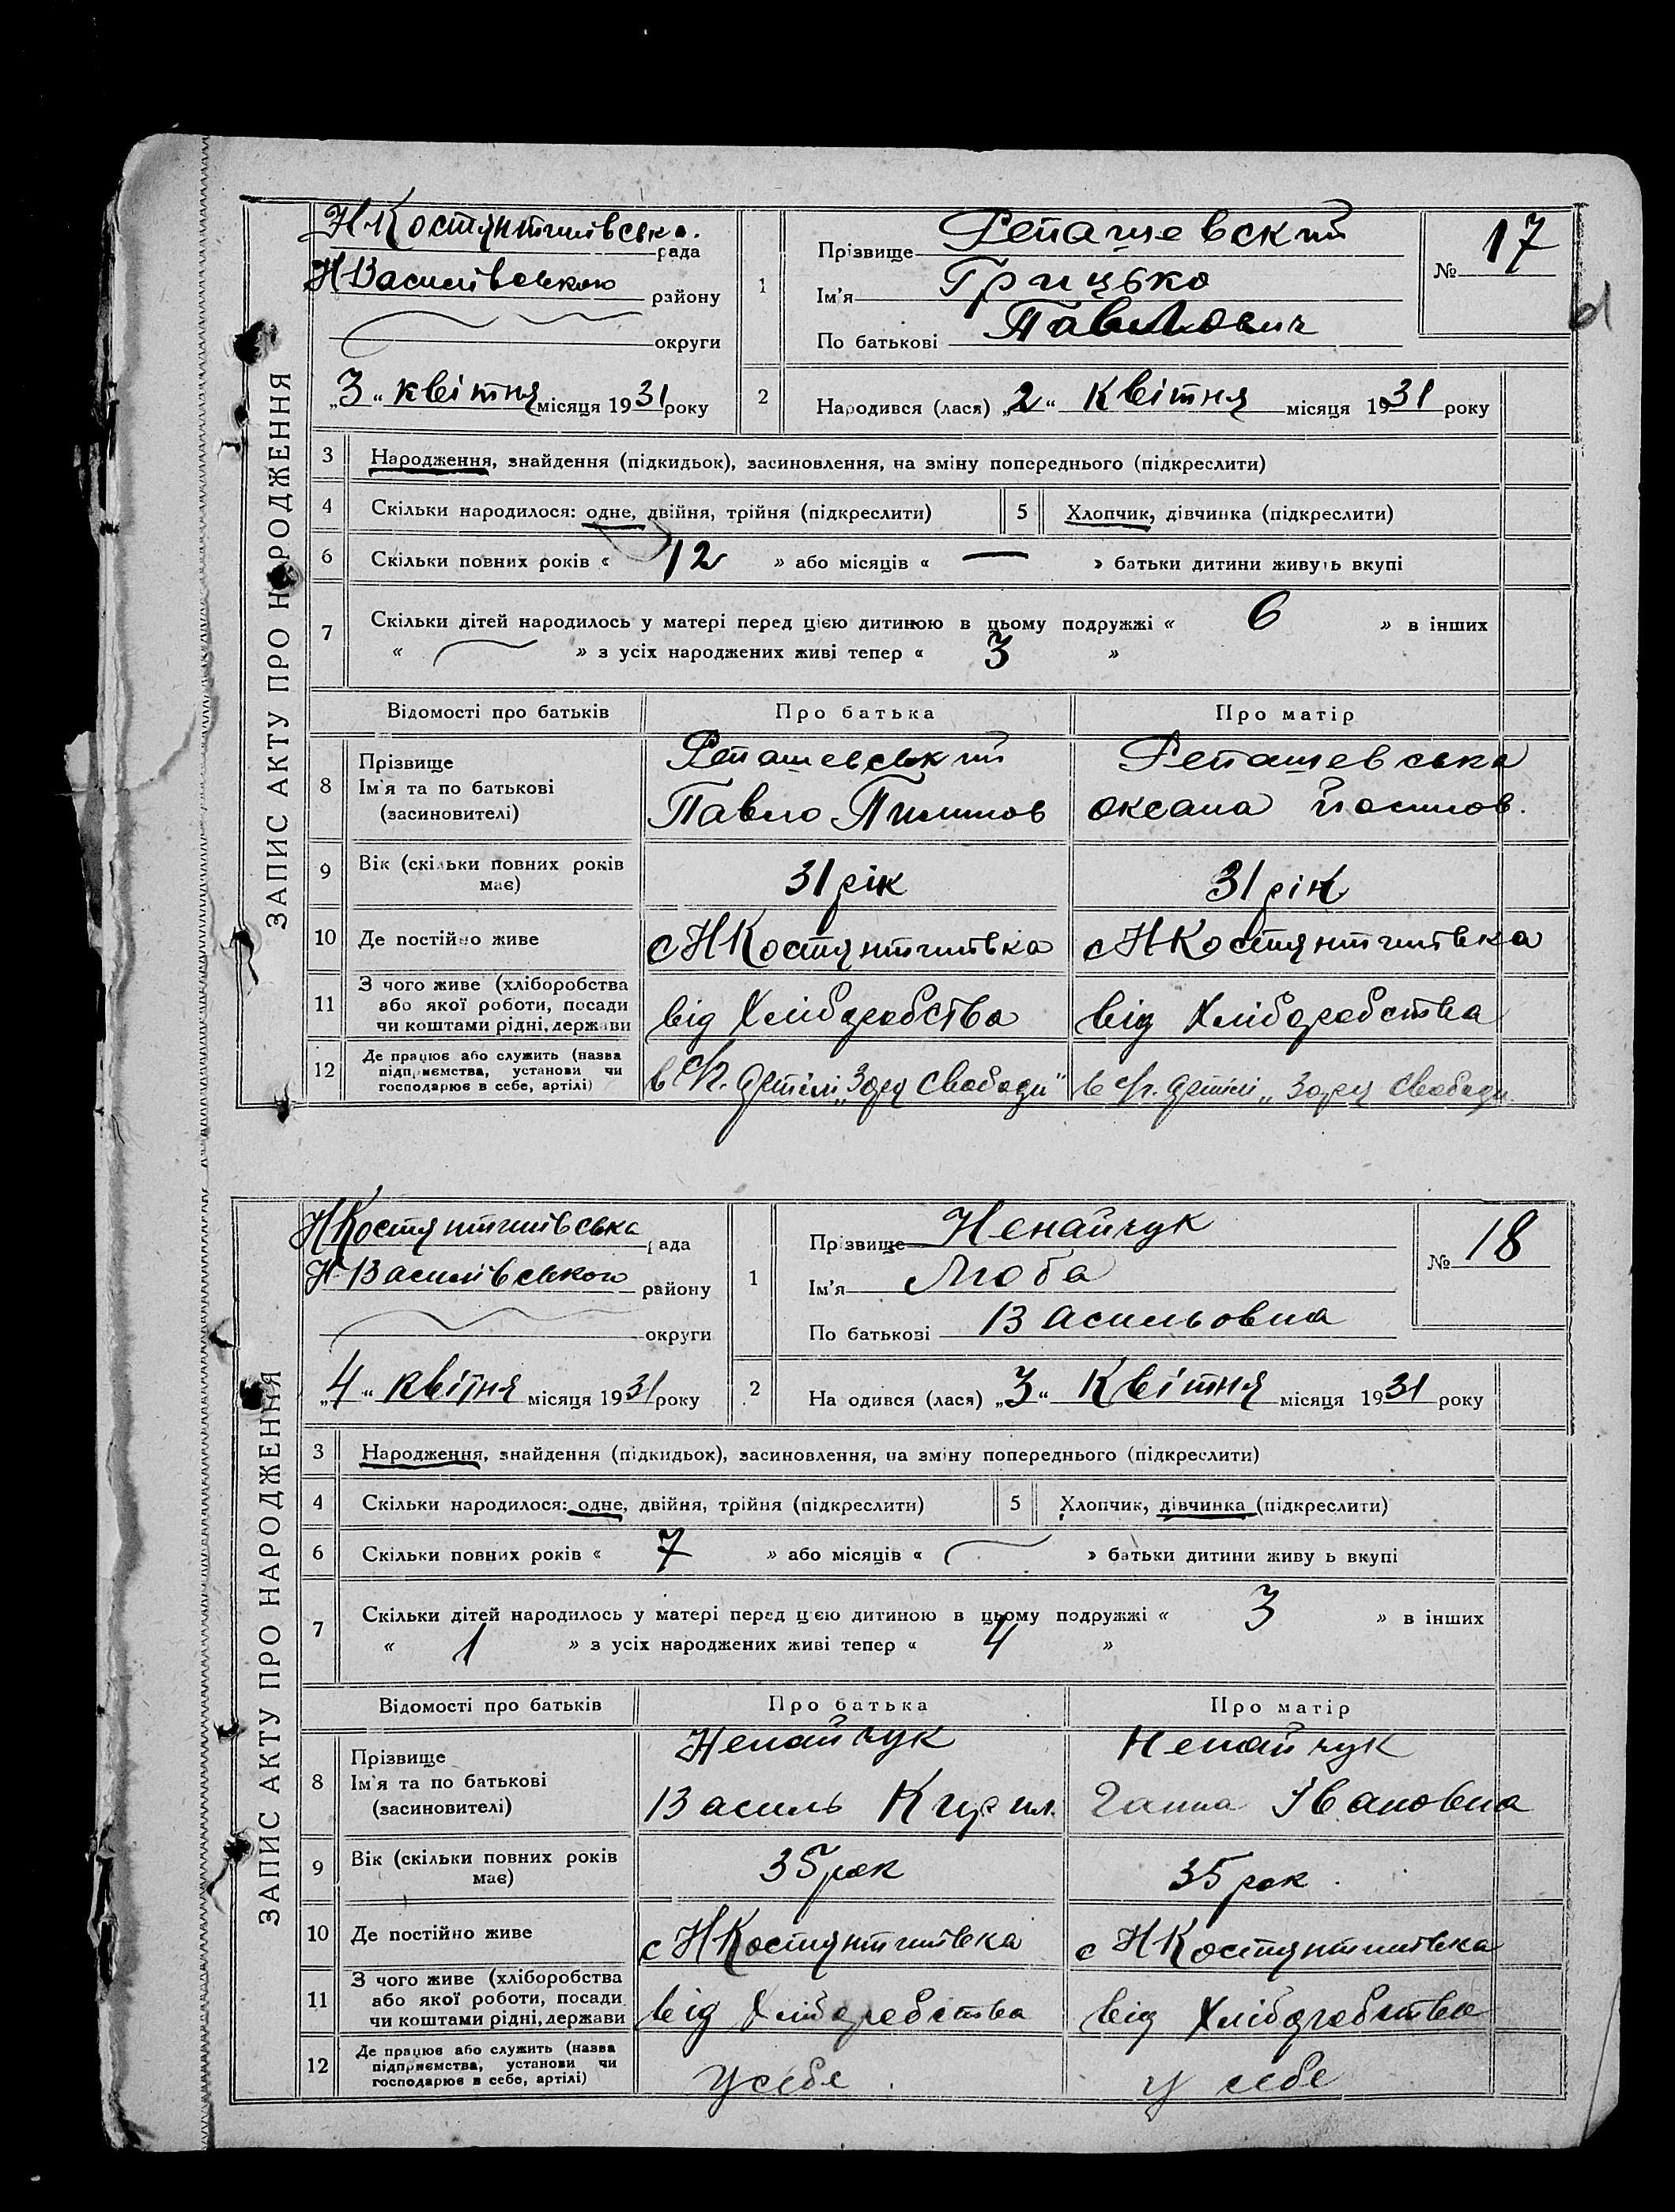 ЗАПИС АКТУ ПРО НАРОДЖЕННЯ
Н-Костянтинівська.
рада
Н Василівського району
округи
„3“ квітня місяця 1931 року
1
Прізвище Репашевский
Ім'я Грицько
По батькові Павлович
№ 17
2
Народився (лася) „2“ Квітня місяця 1931 року
3 Народження, знайдення (підкидьок), засиновлення, на зміну попереднього (підкреслити)
4 Скільки народилося: одне, двійня, трійня (підкреслити) 5 Хлопчик, дівчинка (підкреслити)
6 Скільки повних років « 12 » або місяців « — » батьки дитини живуть вкупі
7 Скільки дітей народилось у матері перед цією дитиною в цьому подружжі « 6 » в інших
« — » з усіх народжених живі тепер « 3 »
Відомості про батьків Про батька Про матір
8 Прізвище Репашевський Репашевська
Ім'я та по батькові Павло Пилипов Оксана Йосипов.
(засиновителі)
9 Вік (скільки повних років має) 31 рік 31 рік
10 Де постійно живе с НКостянтинівка с Н-Костянтинівка
11 З чого живе (хліборобства
або якої роботи, посади
чи коштами рідні, держави від Хліборобства від Хліборобства
12 Де працює або служить (назва
підприємства, установи чи
господарює в себе, артілі) в С/г. Артілі „Зоря Свободи" в с/г. Артілі „Зоря Свободи
ЗАПИС АКТУ ПРО НАРОДЖЕННЯ
НКостянтинівська рада
Н-Василівського району
округи
„4“ квітня місяця 1931 року
1
Прізвище Ненайчук
Ім'я Люба
По батькові Васильовна
№ 18
2
Народився (лася) „3“ Квітня місяця 1931 року
3 Народження, знайдення (підкидьох), засиновлення, на зміну попереднього (підкреслити)
4 Скільки народилося: одне, двійня, трійня (підкреслити) 5 Хлопчик, дівчинка (підкреслити)
6 Скільки повних років « 7 » або місяців « — » батьки дитини живуть вкупі
7 Скільки дітей народилось у матері перед цією дитиною в цьому подружжі « 3 » в інших
« 1 » з усіх народжених живі тепер « 4 »
Відомості про батьків Про батька Про матір
8 Прізвище Ненайчук Ненайчук
Ім'я та по батькові Василь Кирил. Ганна Івановна
(засиновителі)
9 Вік (скільки повних років має) 35 рок 35 рок.
10 Де постійно живе с НКостянтинівка с НКостянтинівка
11 З чого живе (хліборобства
або якої роботи, посади
чи коштами рідні, держави від Хліборобства від Хліборобства
12 Де працює або служить (назва
підприємства, установи чи
господарює в себе, артілі) У себе. у себе